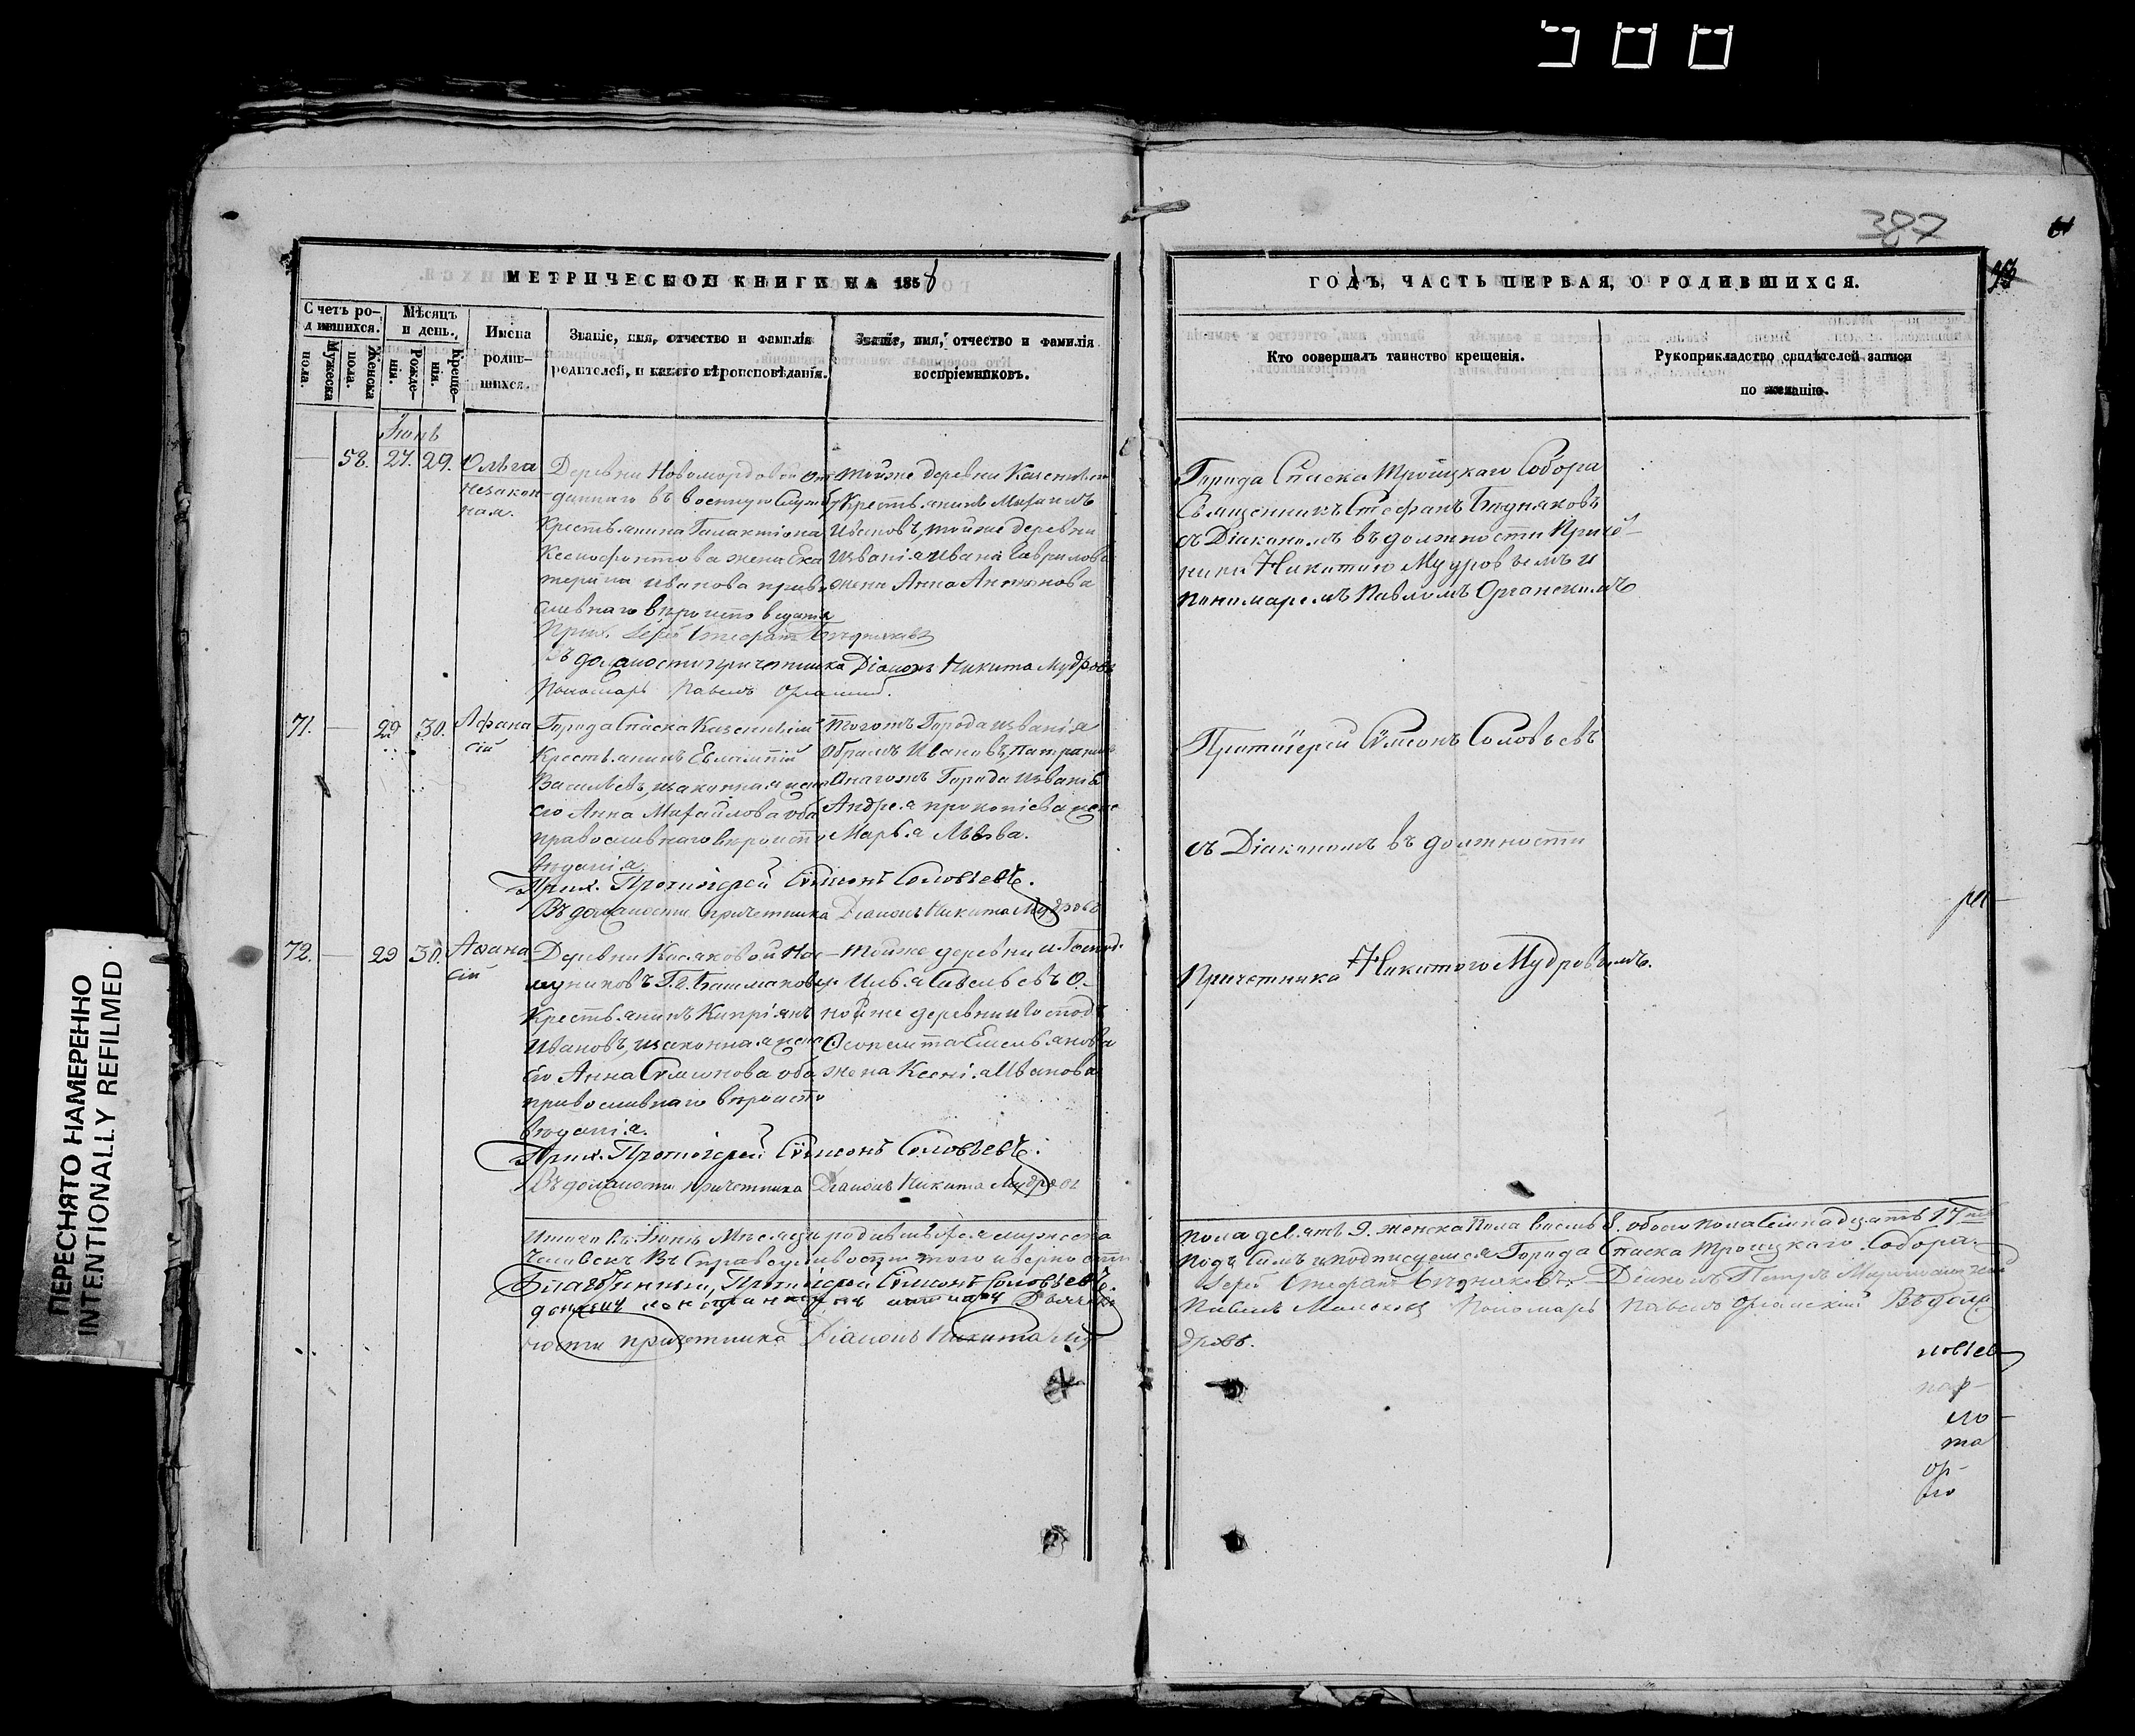 500
387
МЕТРИЧЕСКОЙ КНИГИ НА 1858
ГОДЪ, ЧАСТЬ ПЕРВАЯ, О РОДИВШИХСЯ.
Счетъ родившихся.
Мужеска пола.
Женска пола.
Мѣсяцъ и день.
Рожденія.
Крещенія.
Имена родившихся.
Званіе, имя, отчество и фамилія
родителей, и какого вѣроисповѣданія.
Званіе, имя, отчество и фамилія
воспріемниковъ.
Кто совершалъ таинство крещенія.
Рукоприкладство свидѣтелей записи
по желанію.
Іюнь
58. 27. 29. Ольга
незакон-
ная.
Деревни Новомордовой от-
даннаго въ военную службу
Крестьянина Галактіона
Ксенофонтова жена Ека
терина Иванова право
славнаго вѣроисповеданія
Прих. Іерей Стефанъ Бѣдняковъ
Въ должности причетника Діаконъ Никита Мудровъ
Пономарь Павелъ Органскій.
тойже деревни Казенный
Крестьянинъ Михаилъ
Ивановъ, тойже деревни
Изванія Ивана Гаврилова
жена Анна Антонова
Города Спаска Троицкаго Собора
Священникъ Стефанъ Бѣдняковъ
съ Діакономъ въ должности Причет-
ника Никитою Мудровымъ и
пономаремъ Павломъ Органскимъ
71. — 29 30. Афана
сій
Города Спаска Казенный
Крестьянинъ Евлампій
Васильевъ, изаконная жена
его Анна Михайлова оба
православнаго вѣроиспо
вѣданія.
Прих. Протоіерей Сѵмеонъ Соловьевъ.
Въ должности причетника Діаконъ Никита Мудровъ
тогожъ Города изванія
Абрамъ Ивановъ
Онагожъ Города Изванія
Андрея прокопіева жена
Марья Львова.
Протоіерей Сѵмеонъ Соловьевъ
съ Діакономъ въ должности
Причетника Никитою Мудровымъ.
72. — 29 30. Афана
сій
Деревни Кисяковой Нас-
лѣдниковъ Г.г. Башмаковых
Крестьянинъ Кипріянъ
Ивановъ, изаконная жена
его Анна Сѵмеонова оба
православнаго вѣроиспо
вѣданія.
Прих. Протоіерей Сѵмеонъ Соловьевъ.
Въ должности причетника Діаконъ Никита Мудровъ
тойже деревни и Господ.
Илья Савельевъ О-
нойже деревни и Господъ
жена Ксенія Иванова
Итого въ Іюнѣ Мѣсяцѣ родившихся мужеска
пола девять 9. женска Пола восемь 8. обоего пола Семнадцать 17ть
Человекъ Въ Справедливости того и верности
Подъ Симъ и подписуемся Города Спаска Троицкаго Собора.
Благочинный, Протоіерей Сѵмеонъ Соловьевъ.
Іерей Стефанъ Бѣдняковъ. Діаконъ Петръ
Пономарь Павелъ Органскій Въ долж
ности причетника Діаконъ Никита Му
дровъ.
ПЕРЕСНЯТО НАМЕРЕННО
INTENTIONALLY REFILMED